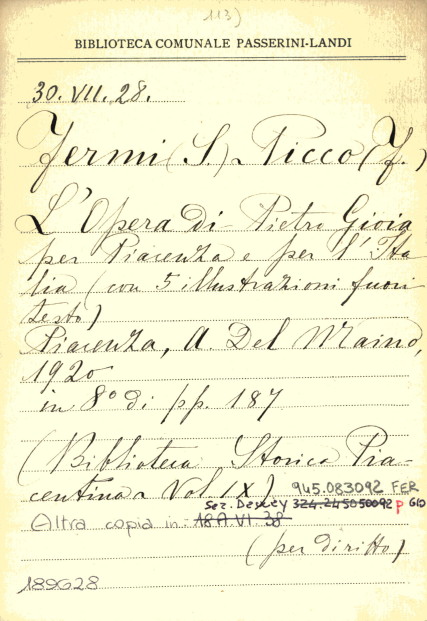 113)
BIBLIOTECA COMUNALE PASSERINI-LANDI
30.VII.28.
Fermi (S) Picco (F.)
L'Opera di Pietro Gioia
per Piacenza e per l'Ita
lia (con 5 illustrazioni fuori
testo)
Piacenza, A. Del Maino,
1920
in 8° di pp. 187
(Biblioteca Storica Pia-
centina Vol IX) 945.083092 FER
Sez. Dewey 324.245050092 p GIO
Altra copia in: 18A VI 38
(per diritto)
189628